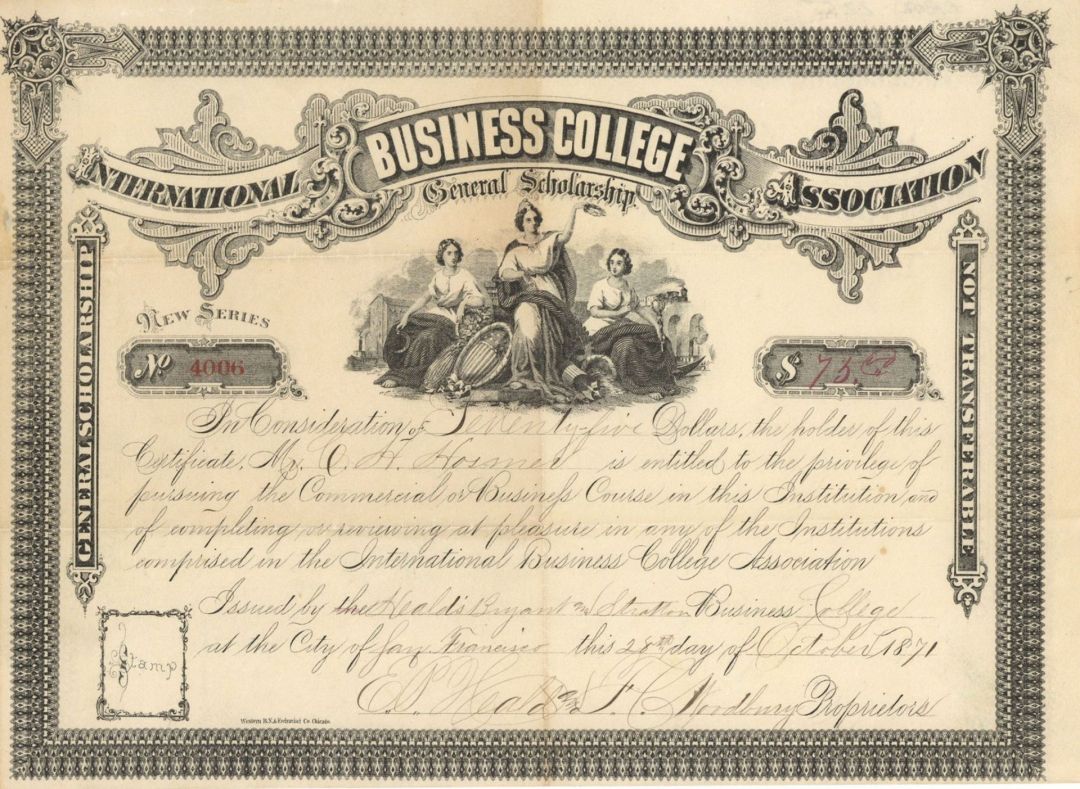 BUSINESS COLLEGE
INTERNATIONAL ASSOCIATION
General Scholarship
GENERAL SCHOLARSHIP
NOT TRANSFERABLE
NEW SERIES
No 4006
$ 75.00
In Consideration of Seventy-five Dollars, the holder of this
Certificate, Mr. O. H. Hosmer is entitled to the privilege of
pursuing the Commercial or Business Course in this Institution and
of completing or reviewing at pleasure in any of the Institutions
comprised in the International Business College Association
Issued by the Heald's Bryant and Stratton Business College
at the City of San Francisco this 28th day of October 1871
E.P. Heald and F. C. Woodbury Proprietors
Stamp
Western B.N.& Co. Chicago.